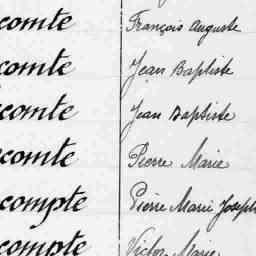 comte François Auguste
comte Jean Baptiste
comte Jean Baptiste
comte Pierre Marie
compte Pierre Marie Joseph
compte Victor Marie